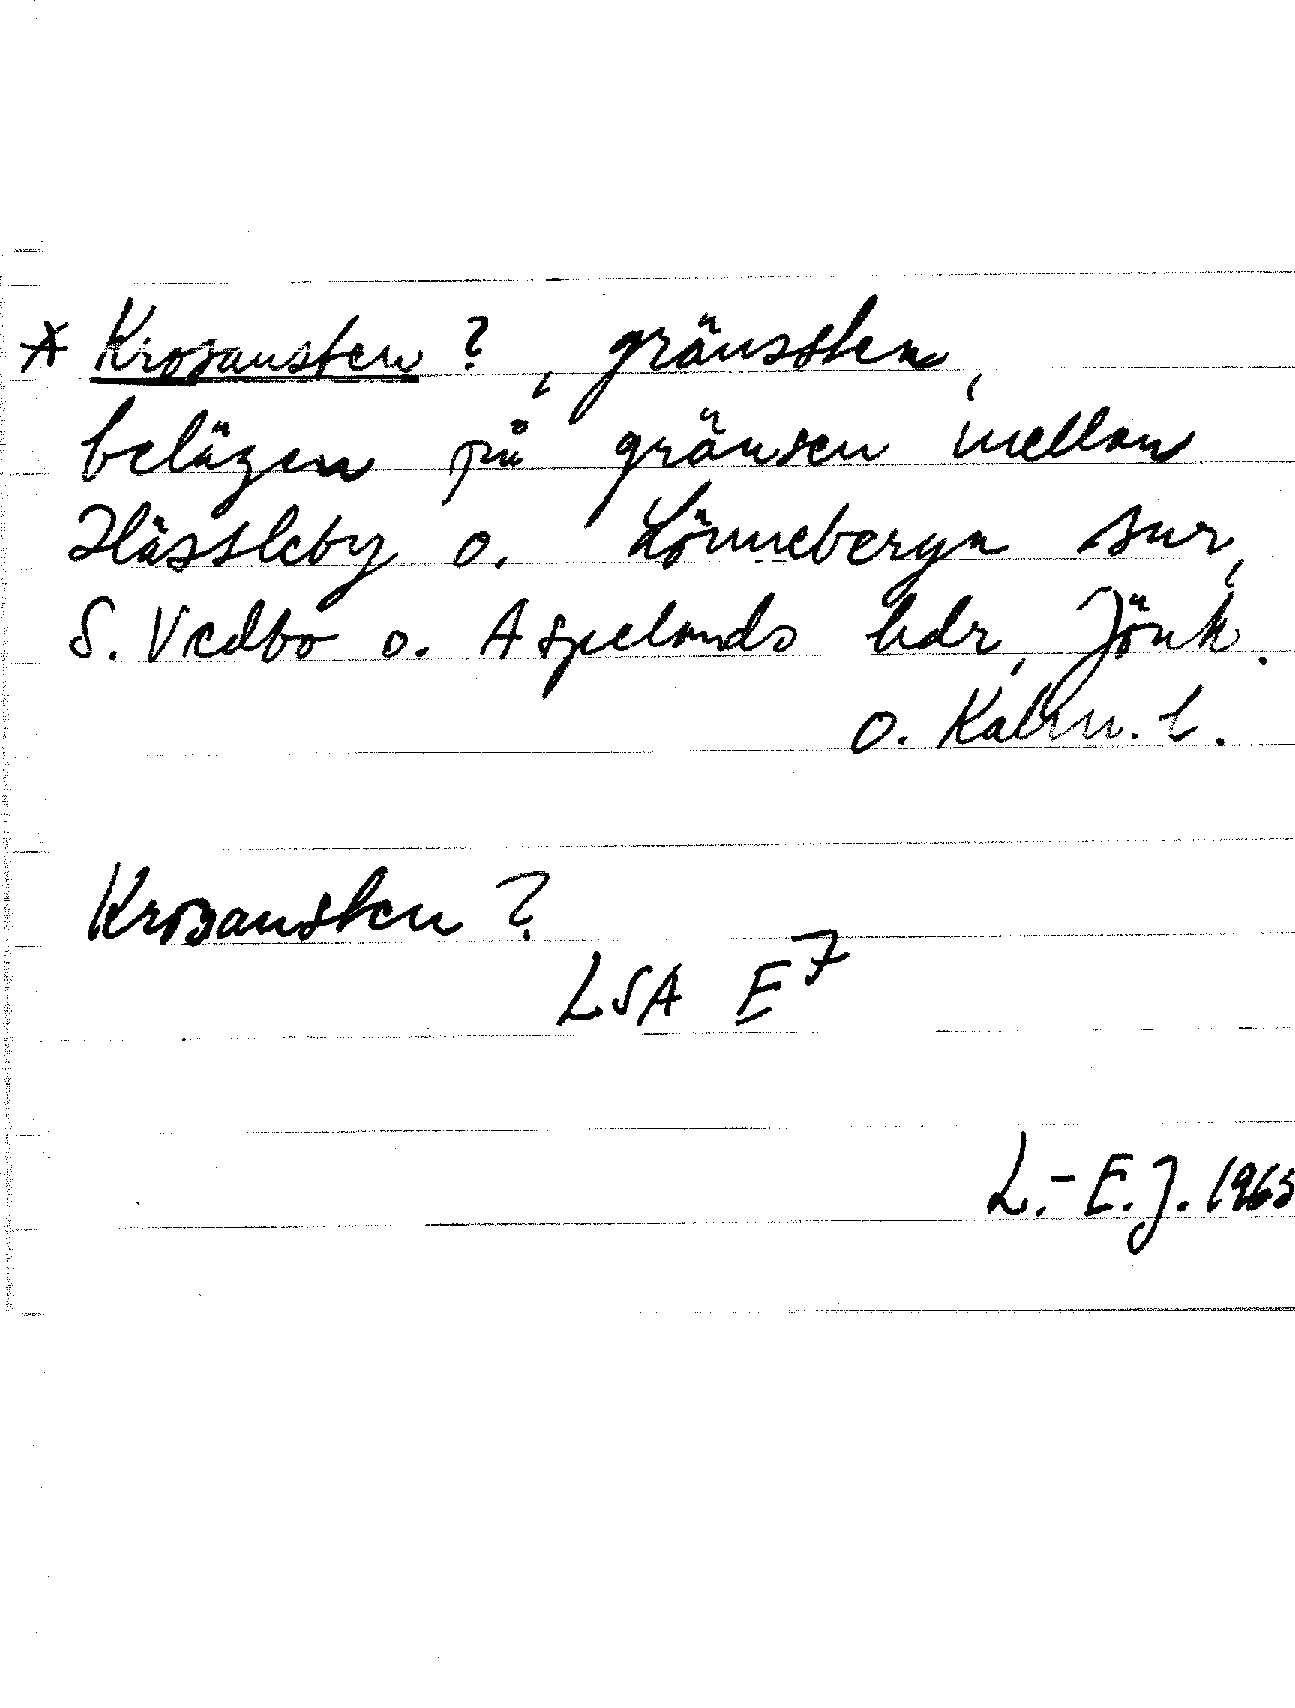 * Krosansten ?, gränssten,
belägen på gränsen mellan
Hässleby o. Lönneberga snr,
S. Vedbo o. Aspelands hdr, Jönk.
o. Kalm. l.
Krosansten ?
LSA E7
L.-E.J. 1965